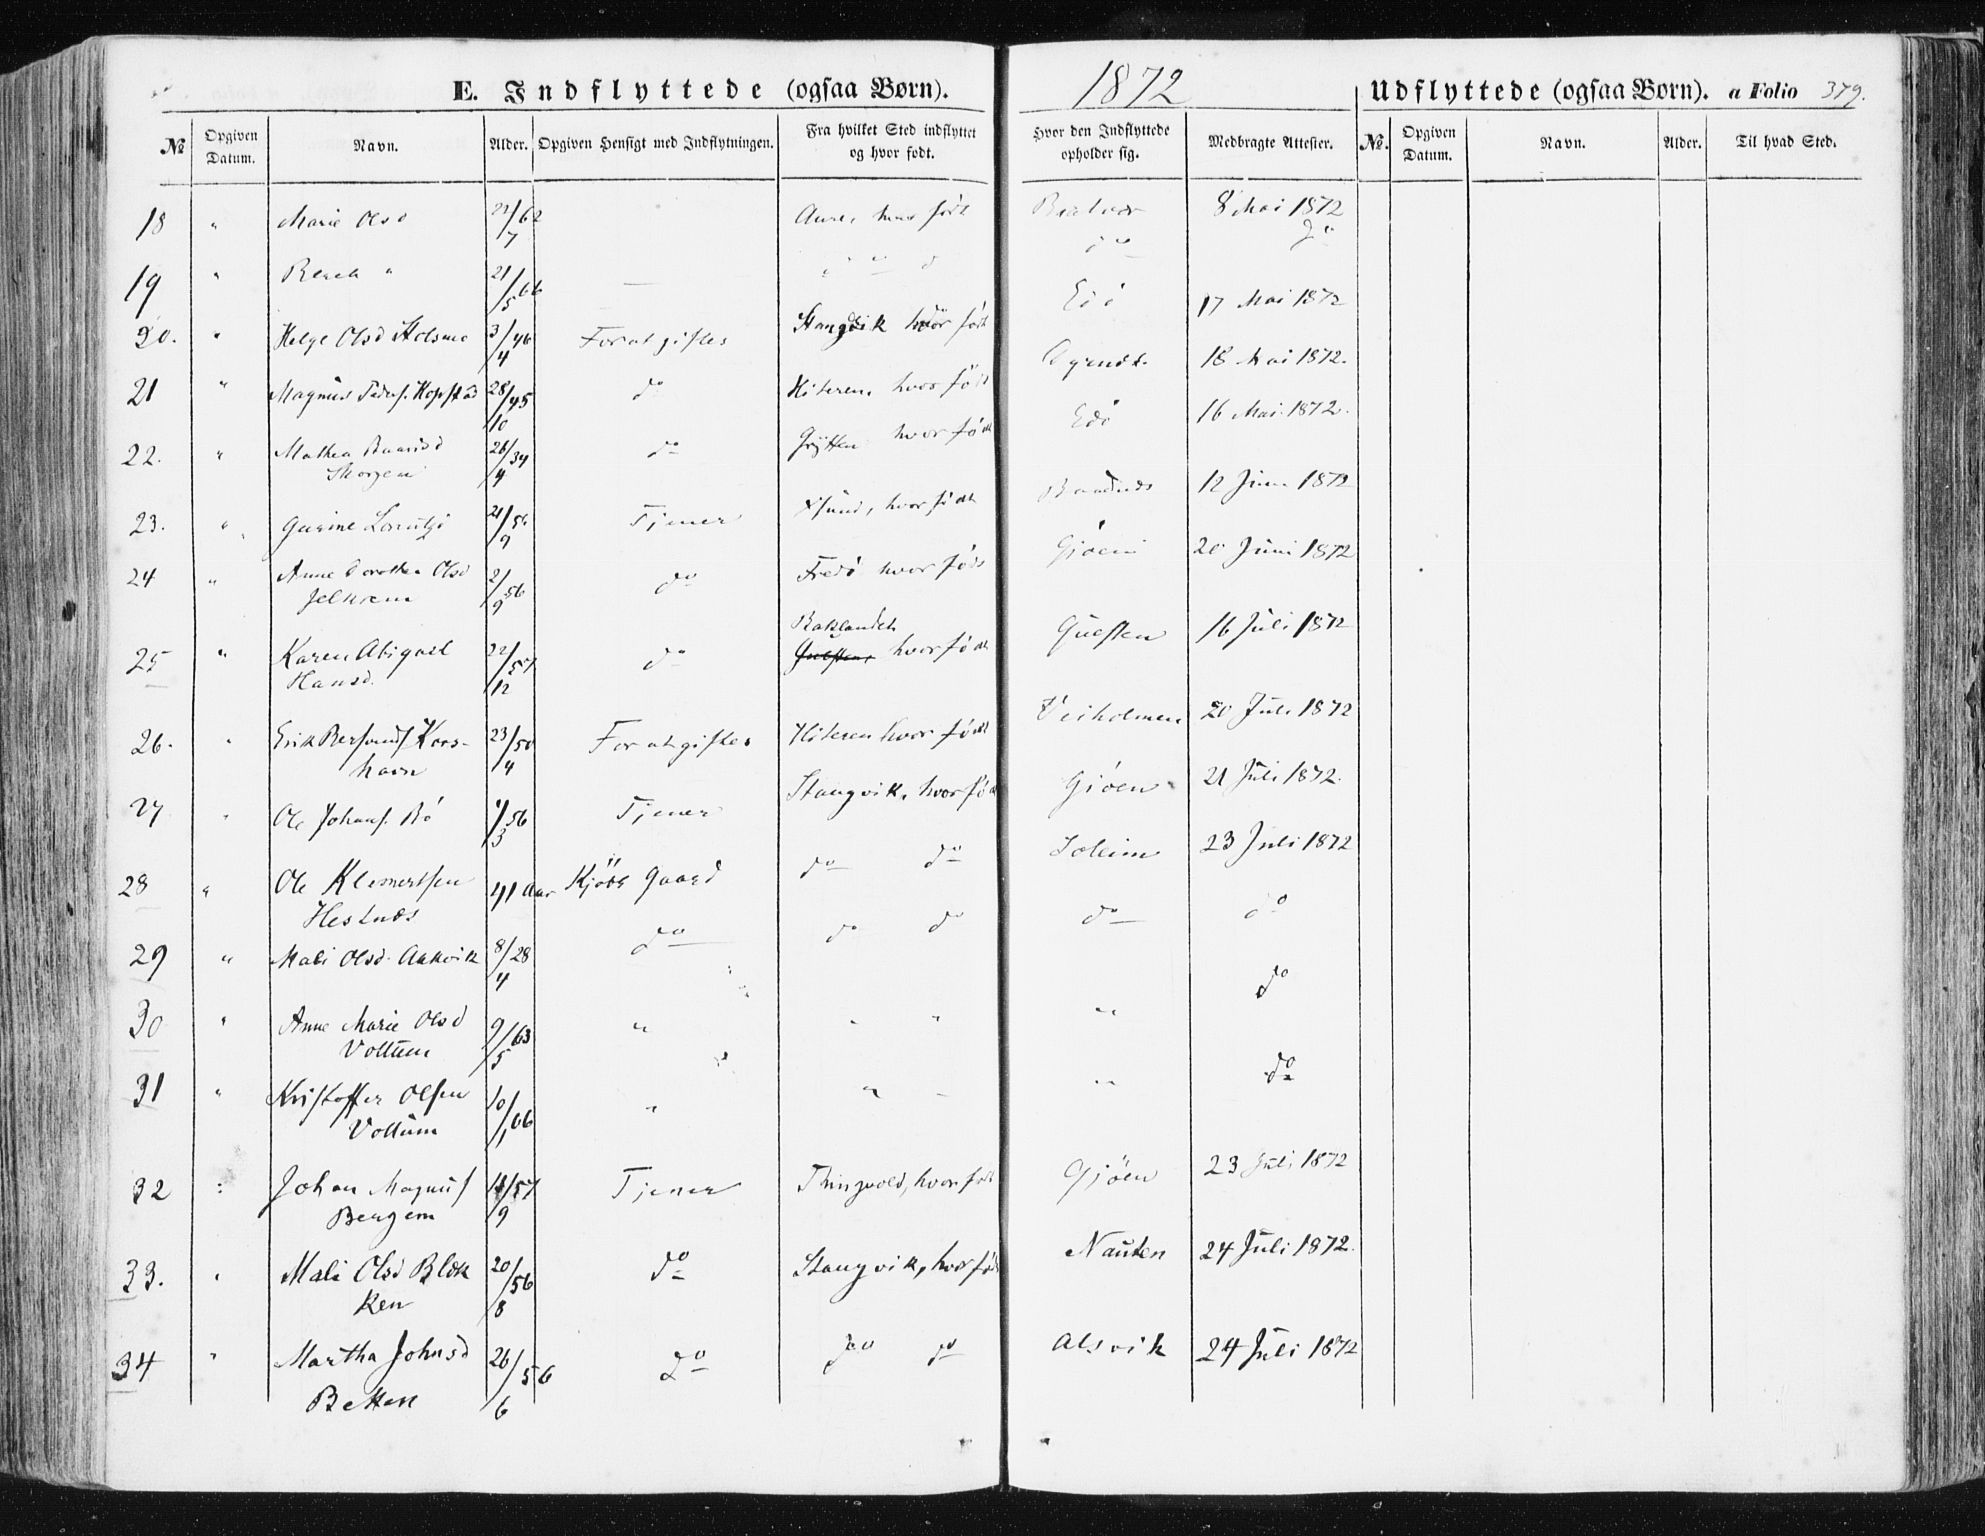 E. Indflyttede (ogsaa Børn).
1872
Udflyttede (ogsaa Børn). a Folio 379.
№ Opgiven Datum. Navn. Alder. Opgiven Hensigt med Indflytningen. Fra hvilket Sted indflyttet og hvor født. Hvor den Indflyttede opholder sig. Medbragte Attester. №. Opgiven Datum. Navn. Alder. Til hvad Sted.
18 " Marie Olsd 22/7 62 Aure, hvor født 8 Mai 1872
19 " " 21/5 66 — do do
20. " Helge Olsd Holsmo 3/4 46 For at giftes Stangvik hvor født Edö 17 Mai 1872
21 " Magnus Peders. Kopstad 28/10 45 do Hiteren, hvor født 18 Mai 1872.
22. " Mathea 28/4 34 do Grytten hvor født Edö 16 Mai 1872.
23. " Gurine 21/9 56 Tjener Xsund, hvor født 12 Juni 1872
24 " Anne Dorothea Olsd Jelkrem 2/9 56 do Fredö hvor føds Gjöen 20 Juni 1872
25 " Karen Abigael Hansd. 22/12 57 do Baklandet hvor født Gulsten 16 Juli 1872
26. " Erik Korshavn 23/4 50 For at giftes Hiteren hvor født Veiholmen 20 Juli 1872
27 " Ole Johans. Bö /3 56 Tjener Stangvik, hvor født Gjöen 21 Juli 1872.
28 " Ole Klemertsen Hestnæs 41 Aar Kjöbt Gaard do do Soleim 23 Juli 1872
29 " Mali Olsd Aakvik 8/4 28 do do do do do
30 " Anne Marie Olsd Vottum 9/5 63 " " " " do
31 " Kristoffer Olsen Vottum 10/1 66 " " " do
32 " Johan Magnus Bergem /9 57 Tjener Thingvold, hvor født Gjöen 23 Juli 1872
33. " Mali Olsd Blekken 20/8 56 do Stangvik, hvor født Nauten 24 Juli 1872.
34 " Martha Johnsd Betten 26/6 56 do do do Alsvik 24 Juli 1872